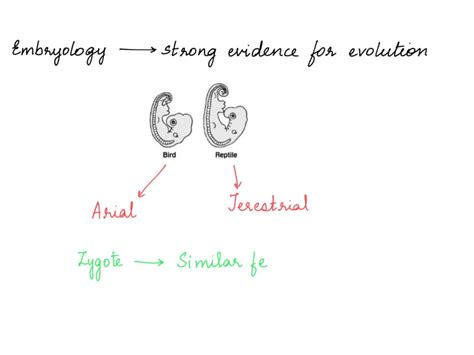 Embryology → strong evidence for evolution
Bird Reptile
Arial Terestrial
Zygote → Similar fe